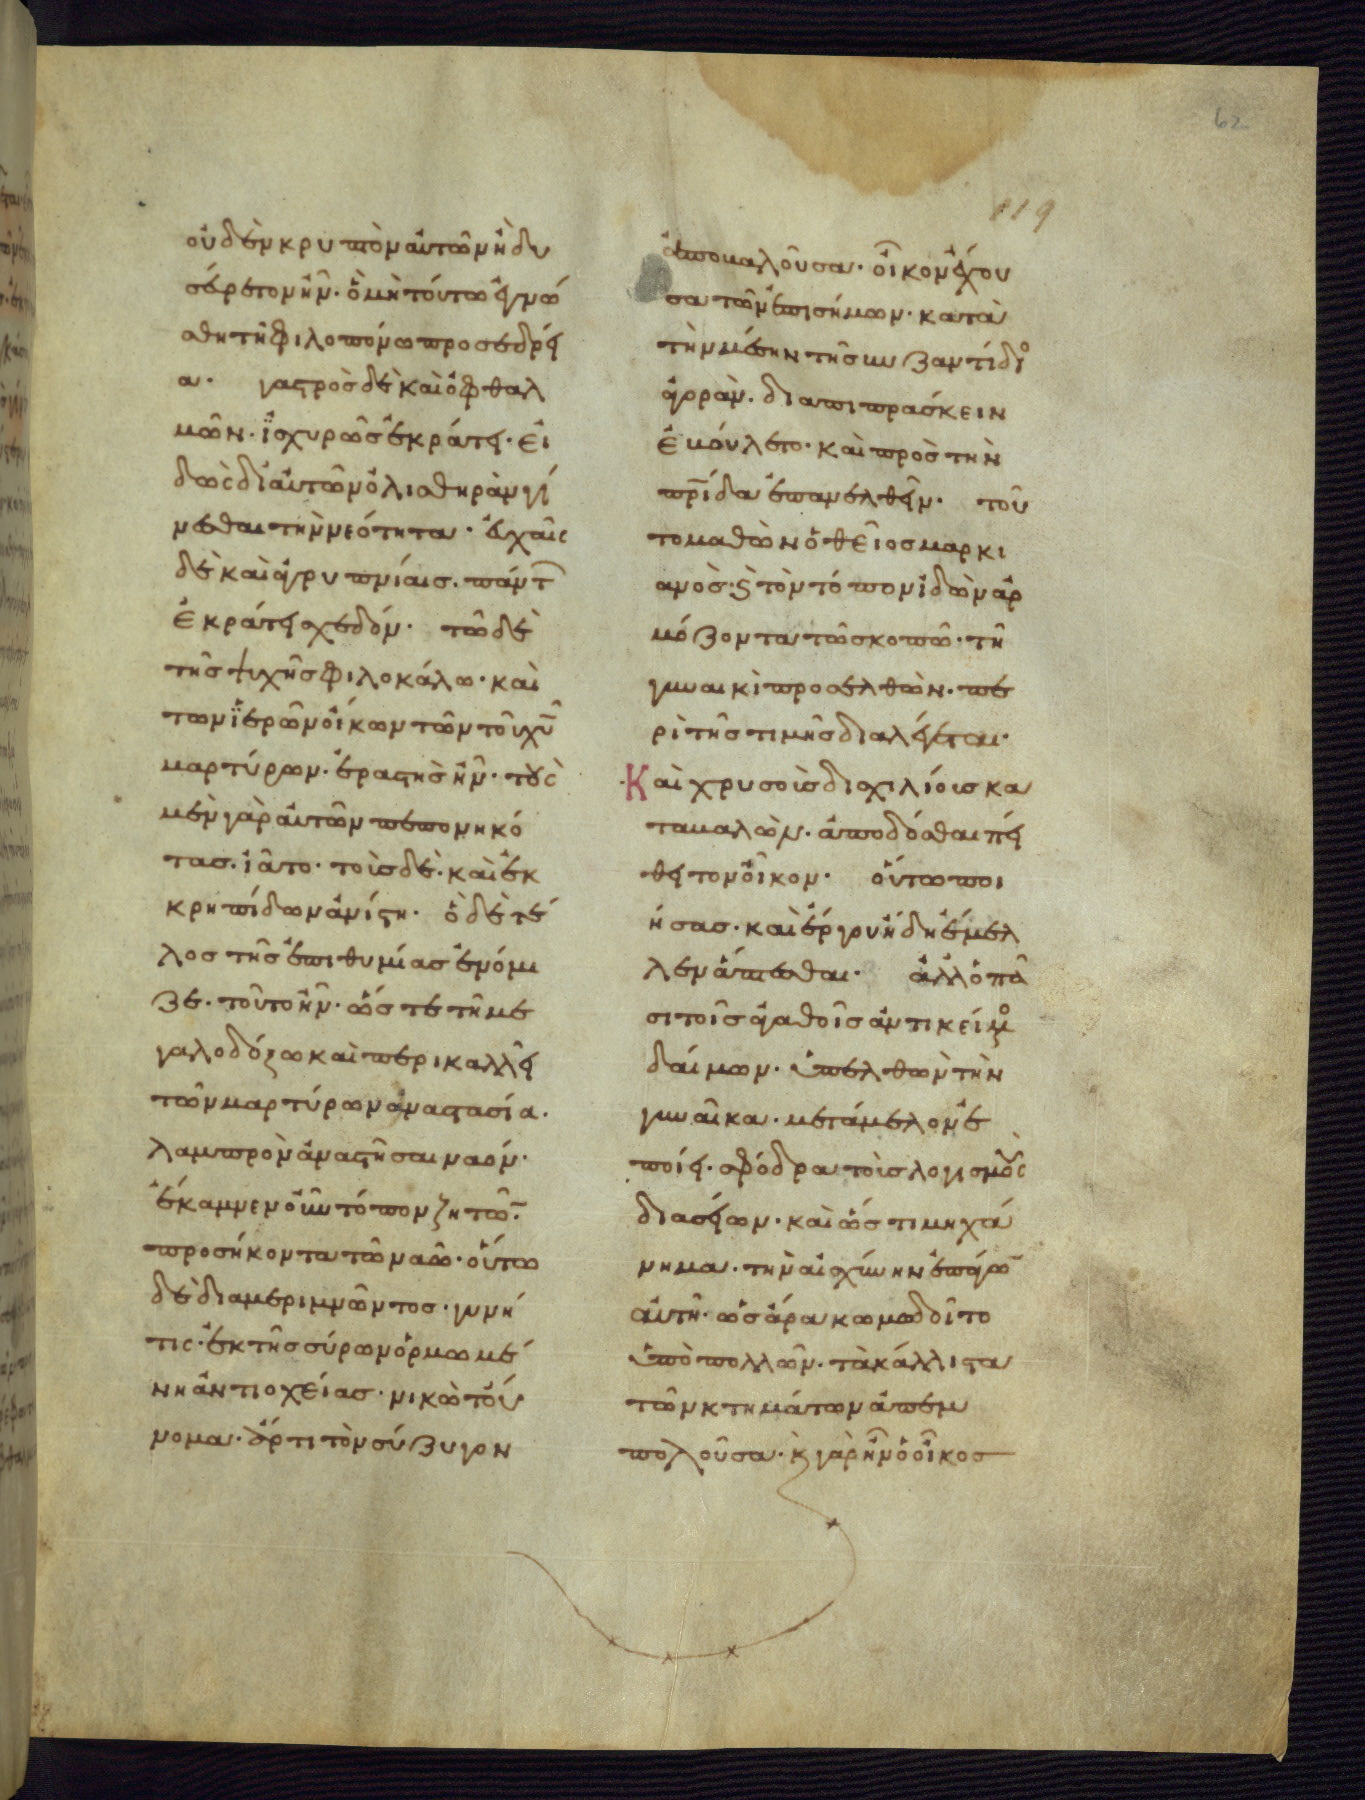 62
119
οὐδὲν κρυπτὸν αὐτῶν ἢ δυ
σέρετον ἦν· ὃ μὴ τούτω ἐγνώ
σθη τῆ φιλοπόνω προσεδρεί
α· γαστρὸς δὲ καὶ ὀφθαλ
μῶν· ἰσχυρῶς ἐκράτει· εἰ
δὼς δι' αὐτῶν ὀλισθηρὰν γί
νεσθαι τὴν νεότητα· εὐχαῖς
δὲ καὶ ἀγρυπνίαις· πάντ
ἐκράτει σχεδόν· τῶ δὲ
τῆς ψυχῆς φιλοκάλω· καὶ
τῶν ἱερῶν οἴκων τῶν τοῦ χυ
μαρτύρων· ἐραστὴς ἦν· τοὺς
μὲν γὰρ αὐτῶν πεπονηκό
τας· ἰᾶτο· τοῖς δὲ· καὶ ἐκ
κρηπίδων ἀνίστη· ὃ δὲ τέ
λος τῆς ἐπιθυμίας ἐνόμι
ζε· τοῦτο ἦν· ὥστε τῆ με
γαλοδόξω καὶ περικαλλεῖ
τῶν μαρτύρων ἀναστασία·
λαμπρὸν ἀναστῆσαι ναόν·
ἔκαμνεν οὖν τόπον ζητῶν·
προσήκοντα τῶ ναῶ· οὕτω
δὲ διαμεριμνῶντος· γυνή
τις· ἐκ τῆς σύρων ὁρμωμέ
νη ἀντιοχείας· νικὼ τοὔ
νομα· ἄρτι τὸν σύζυγον
ἀποβαλοῦσα· οἶκον ἔχου
σα τῶν ἐπισήμων· κατὰ
τὴν μέσην τῆς βυζαντίδο
ἀγορὰν· διαπιπράσκειν
ἐβούλετο· καὶ πρὸς τὴν
πρίδα ἐπανελθεῖν· τοῦ
το μαθὼν ὁ θεῖος μαρκι
ανὸς· καὶ τὸν τόπον ἰδὼν ἁρ
μόζοντα τῶ σκοπῶ· τῆ
γυναικὶ προσελθὼν· πε
ρὶ τῆς τιμῆς διαλέγεται·
Καὶ χρυσοῖς δισχιλίοις κα
ταβαλὼν· ἀποδόσθαι πεί
θει τὸν οἶκον· οὕτω ποι
ήσας· καὶ ἔργου ἤδη ἔμελ
λεν ἅπτεσθαι· ἀλλ' ὁ πᾶ
σι τοῖς ἀγαθοῖς ἀντικείμο
δαίμων· ὑπελθὼν τὴν
γυναῖκα· μετάμελον ἐ
ποίει· σφόδρα τοῖς λογισμοῖς
διασείων· καὶ ὥς τι μηχά
νημα· τὴν αἰσχύνην ἐπάγων
αὐτῆ· ὡς ἄρα κωμωδοῖτο
ὑπὸ πολλῶν· τὰ κάλλιστα
τῶν κτημάτων ἀπεμ
πολοῦσα· καὶ γὰρ ἦν ὁ οἶκος